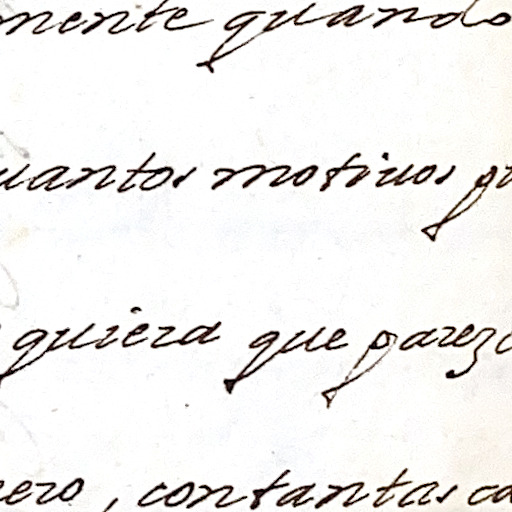 mente quando
uantos motiuos
quiera que parez
ero, contantas ca